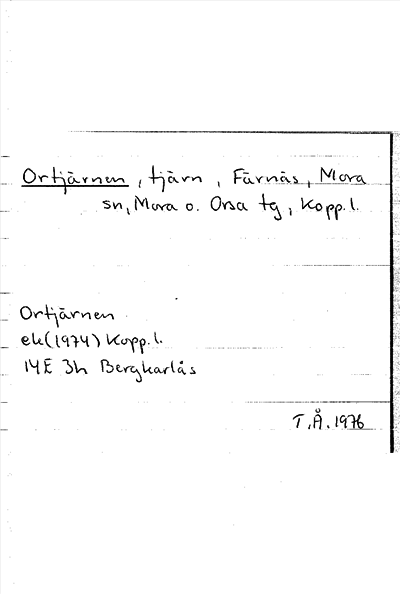 Ortjärnen, tjärn, Färnäs, Mora
sn, Mora o. Orsa tg, Kopp. l.
Ortjärnen
ek (1974) Kopp. l.
14E 3h Bergkarlås
T.Å. 1976